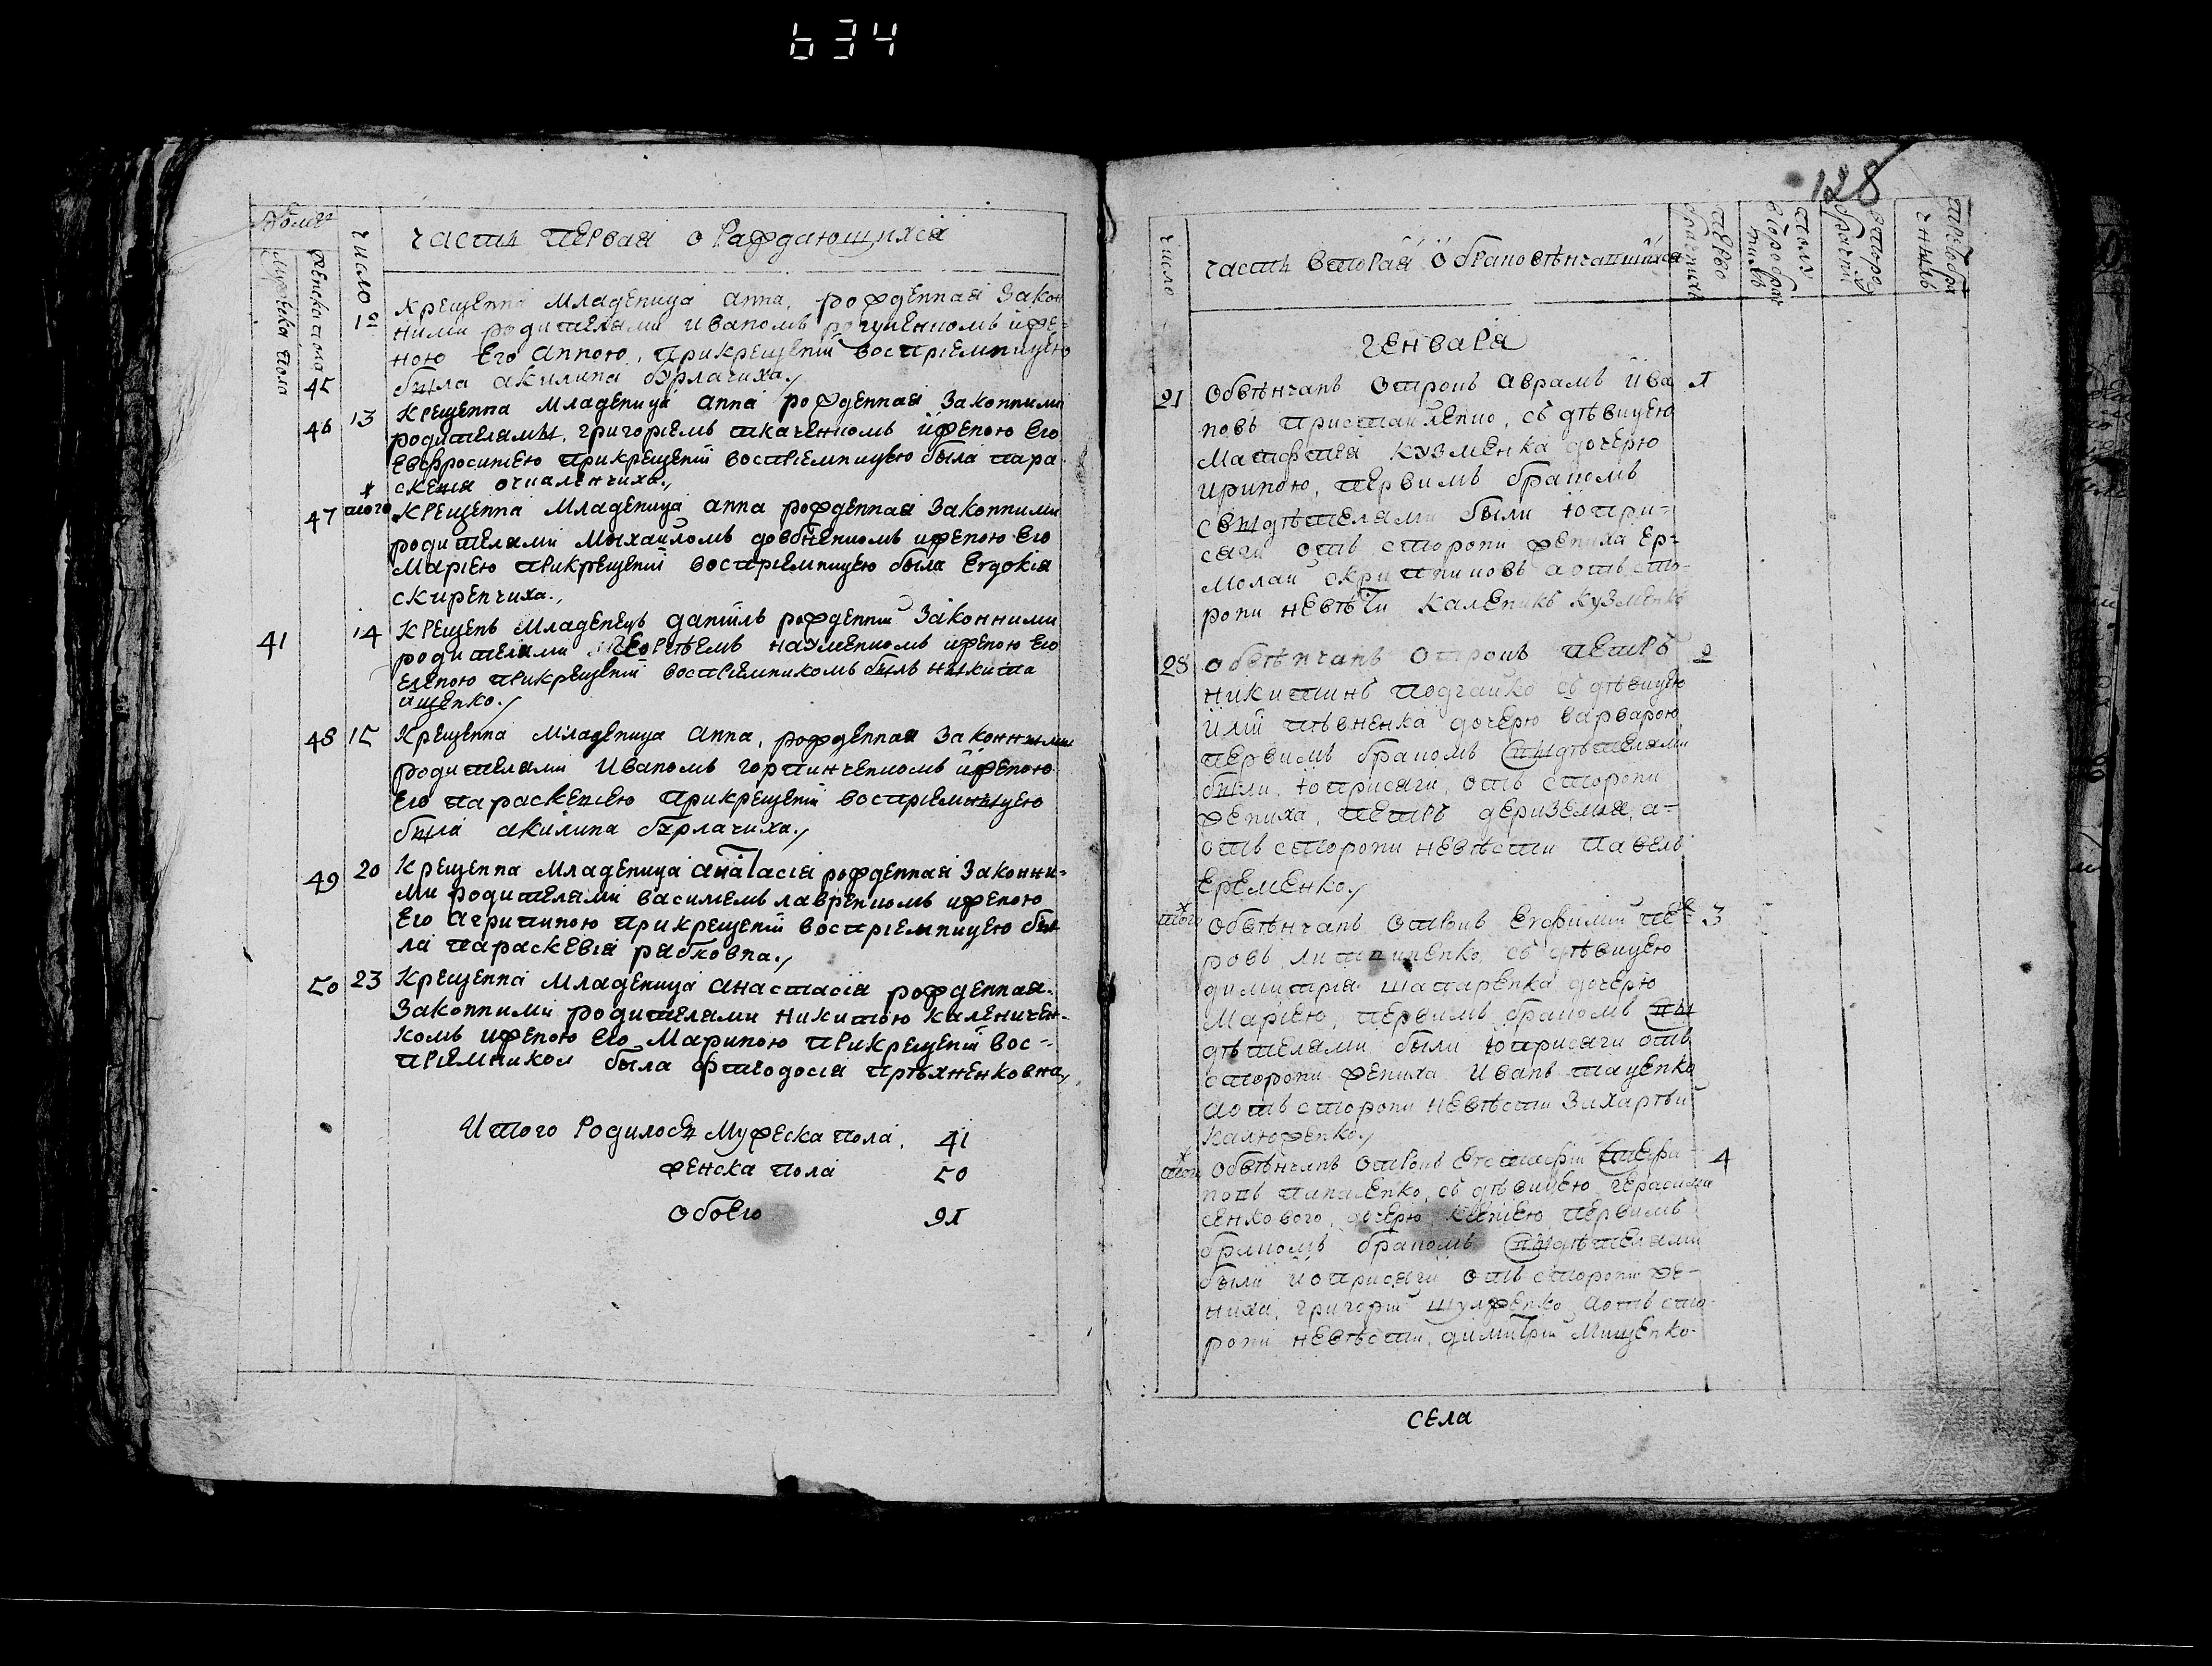 634
число
женска пола
мужеска пола
часть первая о раждающихся
12
крещенна младеница анна, рожденная закон
ними родителями иваномъ иже-
ною его анною, прикрещенїи воспрїемницею
45
была акилина бурлачиха.
46 13 крещенна младеница анна рожденная законними
родителямы, григорїемъ ткаченкомъ иженою его
евфросинїею прикрещенїи воспрїемницею была пара
скевїя
47 того крещенна младеница анна рожденная законними
родителями мыхаиломъ довбненкомъ иженою его
марїею прикрещенїи воспрїемницею была евдокїя
скиренчиха.
41 14 крещенъ младенецъ данїилъ рожденнїй законними
родителями науменкомъ иженою его
еленою прикрещенїи воспрїемникомъ былъ никита
ищенко.
48 15 крещенна младеница анна, рожденная законными
родителями иваномъ горпинченкомъ иженою
его параскевїею прикрещенїи воспрїемныцею
была акилина бурлачиха.
49 20 крещенна младеница анастасїя рожденная законни-
ми родителями василемъ лавренкомъ иженою
его агрипиною прикрещенїи воспрїемницею бы
ла параскевїя рябковна.
50 23 крещенна младеница анастасїя рожденная
законними родителями никитою каленичен-
комъ иженою его мариною прикрещенїи вос-
прїемникол была фтеодосїя пряхненковна
Итого родилось мужеска пола. 41
женска пола 50
обоего 91
128
число
часть вторая о браковѣнчавшихся
генваря
21 обвѣнчанъ отрокъ аврамъ ива 1
новъ съ дѣвицею
матфея кузменка дочерю
ириною, первимъ бракомъ
свыдѣтелями были попри-
сяги отъ сторони жениха ер-
молай аотъ сто-
рони невѣсти каленикъ кузменко
28 обвѣнчанъ отрокъ петръ 2
никитинъ подгайко съ дѣвицею
илїи пѣвненка дочерю варварою
первимъ бракомъ свыдѣтелями
были поприсяги, отъ сторони
жениха, петръ деризємля, а-
отъ сторони невѣсти павелъ
еременко.
того обвѣнчанъ отрокъ евфимїй пет- 3
ровъ съ дѣвицею
димитрїя шапаренка дочерю
марїею, первимъ бракомъ свы
дѣтелями были поприсяги отъ
сторони жениха иванъ таценко
аотъ сторони невѣсти захарѣй
калюженко.
того обвѣнчанъ отрокъ евстафїй стефа- 4
новъ съ дѣвицею герасима
сенкового, дочерю ксенїею первимъ
бракомъ бракомъ свыдѣтелями
были поприсяги отъ сторони же-
ниха, григорїй шулженко аотъ сто-
рони невѣсти, димитрїй мищенко.
села